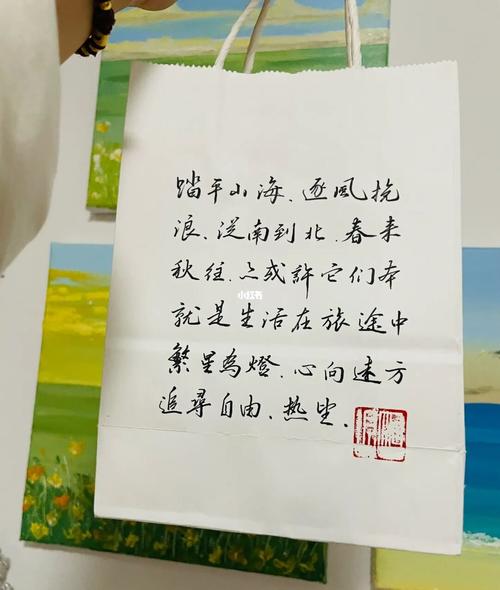 踏平山海、逐風挽
浪、從南到北、春来
秋往、亦或許它们本
小红书
就是生活在旅途中
繁星為燈、心向遠方
追尋自由、热望、